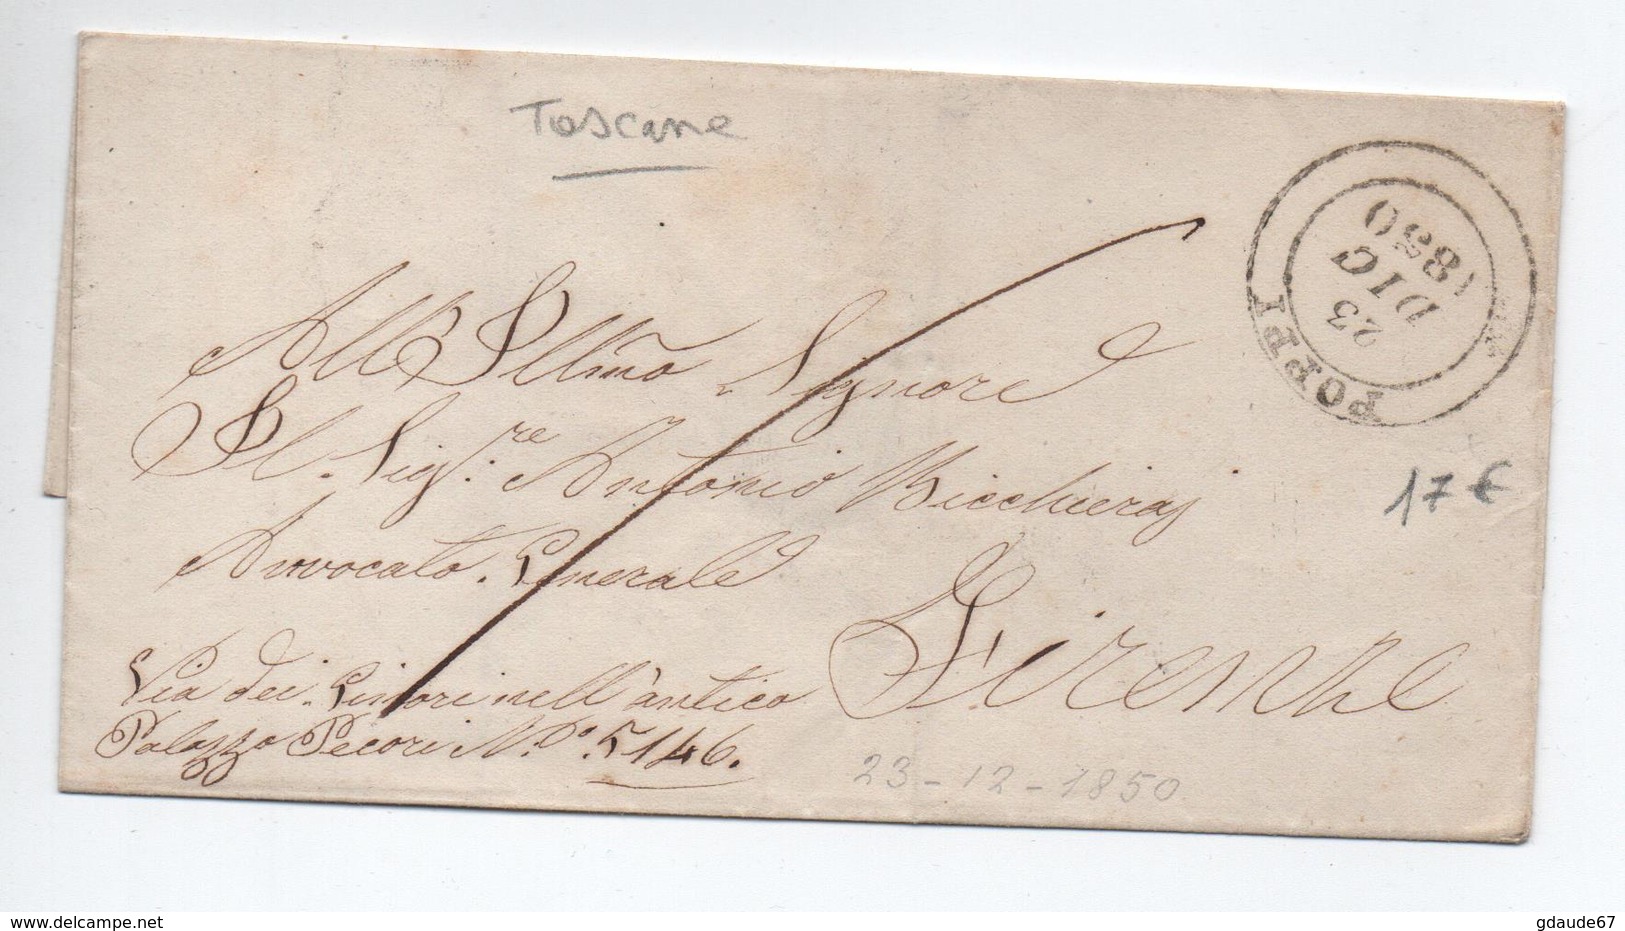 Toscane
23
DIC
1850
POPPI
17 €
All Illmo Signore
Il Sigre Antonio Bicchierai
Avvocato Generale
Firenze
Via dei Ginori nell'antico
Palazzo Pecori N.o 5146.
23-12-1850
www.delcampe.net
gdaude67